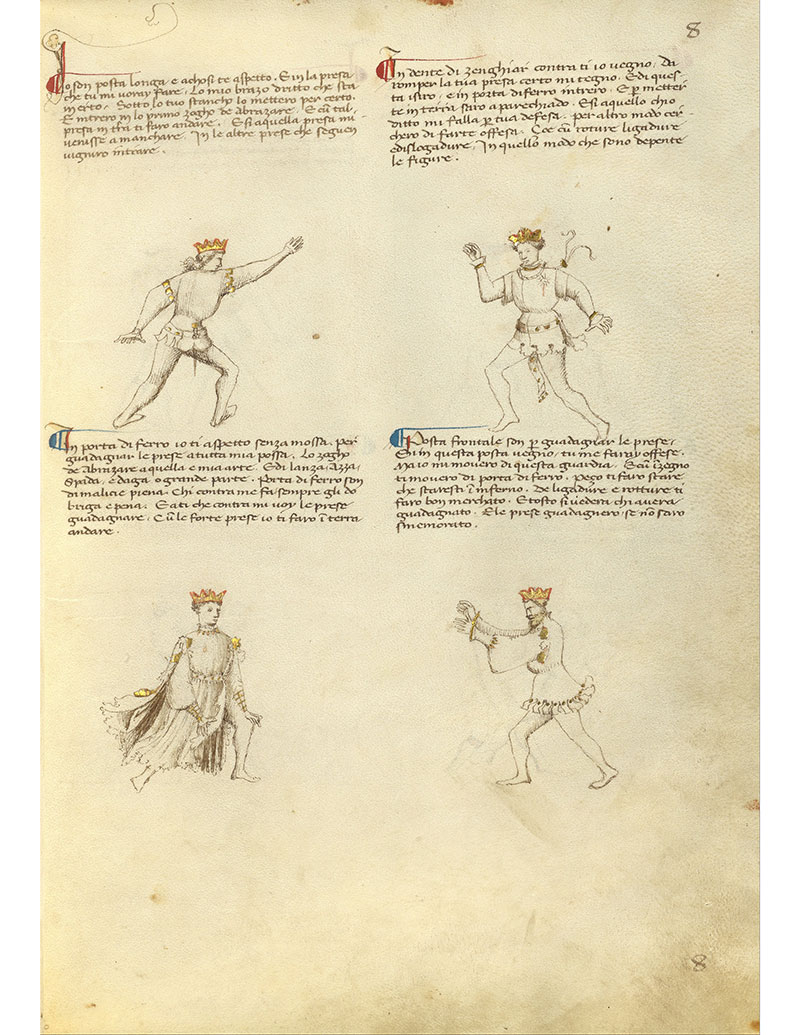 8
Io son posta longa e achosi te aspetto. E in la presa
che tu mi voray fare. Lo mio brazo dritto che sta
in erto. Sotto lo tuo stancho lo mettero per certo.
E intrero in lo primo zogho de abrazare. E cu tal
presa in tra ti faro andare. E si aquella presa mi
venisse a manchare. In le altre prese che seguen
vigniro intrare.
In dente di zenghiar contra ti io vegno. Da
romper la tua presa certo mi tegno. E di ques-
ta isiro, e in porta di ferro intrero. E p metter
te in terra saro aparechiado. E si aquello ch'io
ditto mi falla p tua defesa. per altro modo cer-
chero di farte offesa. Çoe cu roture ligadure
e dislogadure. In quello modo che sono depente
le figure.
In porta di ferro io ti aspetto senza mossa. per
guadagnar le prese a tutta mia possa. Lo zogho
de abrazare aquella e mia arte. E di lanza, Azza,
Spada, e daga o grande parte. Porta di ferro son
di malicia piena. Chi contra me fa sempre gli do
briga e pena. E a ti che contra mi voy le prese
guadagnare. Cu le forte prese io ti faro i terra
andare.
Posta frontale son p guadagnar le prese.
Si in questa posta vegno, tu me faray offese.
Ma io mi movero di questa guardia. E cu izegno
ti movero di porta di ferro. Pezo ti faro stare
che staresti i inferno. De ligadure e rotture ti
faro bon merchato. E tosto si vedera chi avera
guadagnato. E le prese guadagnero se no saro
smemorato.
8